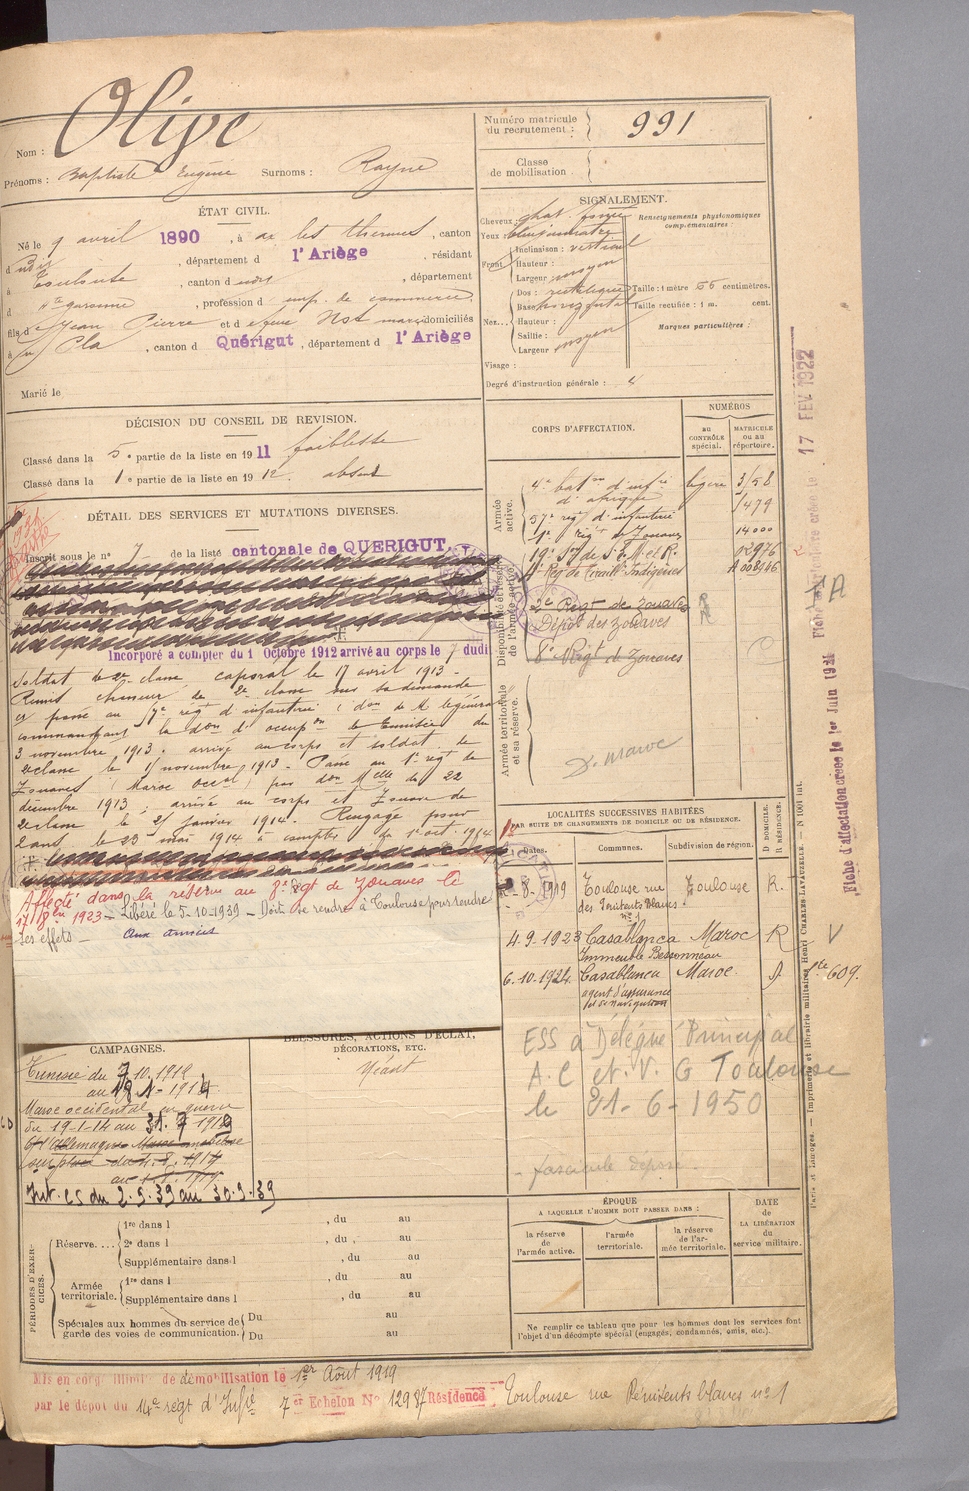 Nom : Olive
Prénoms : Baptiste Eugène Surnoms : Rayne
Numéro matricule du recrutement : 991
Classe de mobilisation.
ÉTAT CIVIL.
Né le 9 avril 1890, à ax les thermes, canton
d dudit, département d l'Ariège, résidant
à Toulouse, canton d dudit, département
d Hte garonne, profession d emp. de commerce.
fils de Jean Pierre et d' domiciliés
à Cla, canton d Quérigut, département d l'Ariège
Marié le
SIGNALEMENT.
Cheveux : chat. foncé
Yeux :
Front
Inclinaison : vertical
Hauteur :
Largeur moyen
Nez...
Dos : rectiligne
Base horizontal
Hauteur :
Saillie :
Largeur moyen
Visage :
Renseignements physionomiques complémentaires
Taille : 1 mètre 66 centimètres.
Taille rectifiée : 1 m. cent.
Marques particulières :
Degré d'instruction générale :
DÉCISION DU CONSEIL DE REVISION.
Classé dans la 5e partie de la liste en 1911 faiblesse
Classé dans la 1e partie de la liste en 1912. absent
DÉTAIL DES SERVICES ET MUTATIONS DIVERSES.
Inscrit sous le n° 7 de la liste cantonale de QUERIGUT.
Incorporé à compter du 1 Octobre 1912 arrivé au corps le 7 dudi
Soldat de 2e classe, caporal le 17 avril 1913 -
Remis chasseur de 2e classe sur sa demande
et passé au 57e rég. d'infanterie (don de M. le général
commandant la don d'occupon de Tunisie du
3 novembre 1913. arrivé au corps et soldat de
2e classe le 11 novembre 1913. Passé au 1er régt de
Zouaves (Maroc occal) par don Melle du 22
décembre 1913 ; arrivé au corps et Zouave de
2e classe le 21 janvier 1914. Rengagé pour
2 ans le 23 mai 1914 à compter du 1er oct. 1914.
Affecté dans la réserve au 8e Régt de Zouaves le
17 1923 - Libéré le 5-10-1939 - Doit se rendre à Toulouse pour rendre
ses effets - aux armées
CORPS D'AFFECTATION.
NUMÉROS
au CONTRÔLE spécial.
MATRICULE ou au répertoire.
Armée active.
4e baton d'infie légère d'afrique 3158
57e rég. d'infanterie 1479
1er régt de Zouaves 14000
19e Son de S. M. et R. 02976
4e Rég. de Tiraill. Indigènes
Disponibilité et réserve de l'armée active.
2e Régt de Zouaves
Dépôt des Zouaves
8e Régt de Zouaves
Armée territoriale et sa réserve.
D. Maroc
LOCALITÉS SUCCESSIVES HABITÉES
PAR SUITE DE CHANGEMENTS DE DOMICILE OU DE RÉSIDENCE.
Dates. Communes. Subdivision de région. D. DOMICILE. R. RÉSIDENCE.
-8-1919 Toulouse rue des Pénitents blancs n° 1 Toulouse R.
4.9.1923 Casablanca Maroc R
Immeuble Bessonneau
6.10.1924 Casablanca Maroc D
agent d'assurance et de navigation
ESS à Délégué Principal
A.C et.V. G Toulouse
le 21-6-1950
- fascicule déposé.
CAMPAGNES.
Tunisie du 7.10.1912
au 18.1-1914
Maroc occidental en guerre
du 19-1-14 au 31.7.1919
Int. cs du 2.9.39 au 30.9.39
BLESSURES, ACTIONS D'ÉCLAT, DÉCORATIONS, ETC.
Néant
PÉRIODES D'EXERCICES.
Réserve....
1re dans l , du au
2e dans l , du , au
Supplémentaire dans l , du au
Armée territoriale.
1re dans l , du au
Supplémentaire dans l , du au
Spéciales aux hommes du service de garde des voies de communication.
Du au
Du au
ÉPOQUE
A LAQUELLE L'HOMME DOIT PASSER DANS :
la réserve de l'armée active.
l'armée territoriale.
la réserve de l'armée territoriale.
DATE de LA LIBÉRATION du service militaire.
Ne remplir ce tableau que pour les hommes dont les services font l'objet d'un décompte spécial (engagés, condamnés, omis, etc.).
Mis en congé illimité de démobilisation le 1er Août 1919
par le dépôt du 14e régt d'Infie 7er Echelon N° 12987 Résidence Toulouse rue Pénitents blancs n° 1
17 FEV. 1922
Fiche d'affectation créée le 1er Juin 1921
A
V
609.
Paris et Limoges. — Imprimerie et librairie militaires Henri CHARLES-LAVAUZELLE. — N 1001 int.